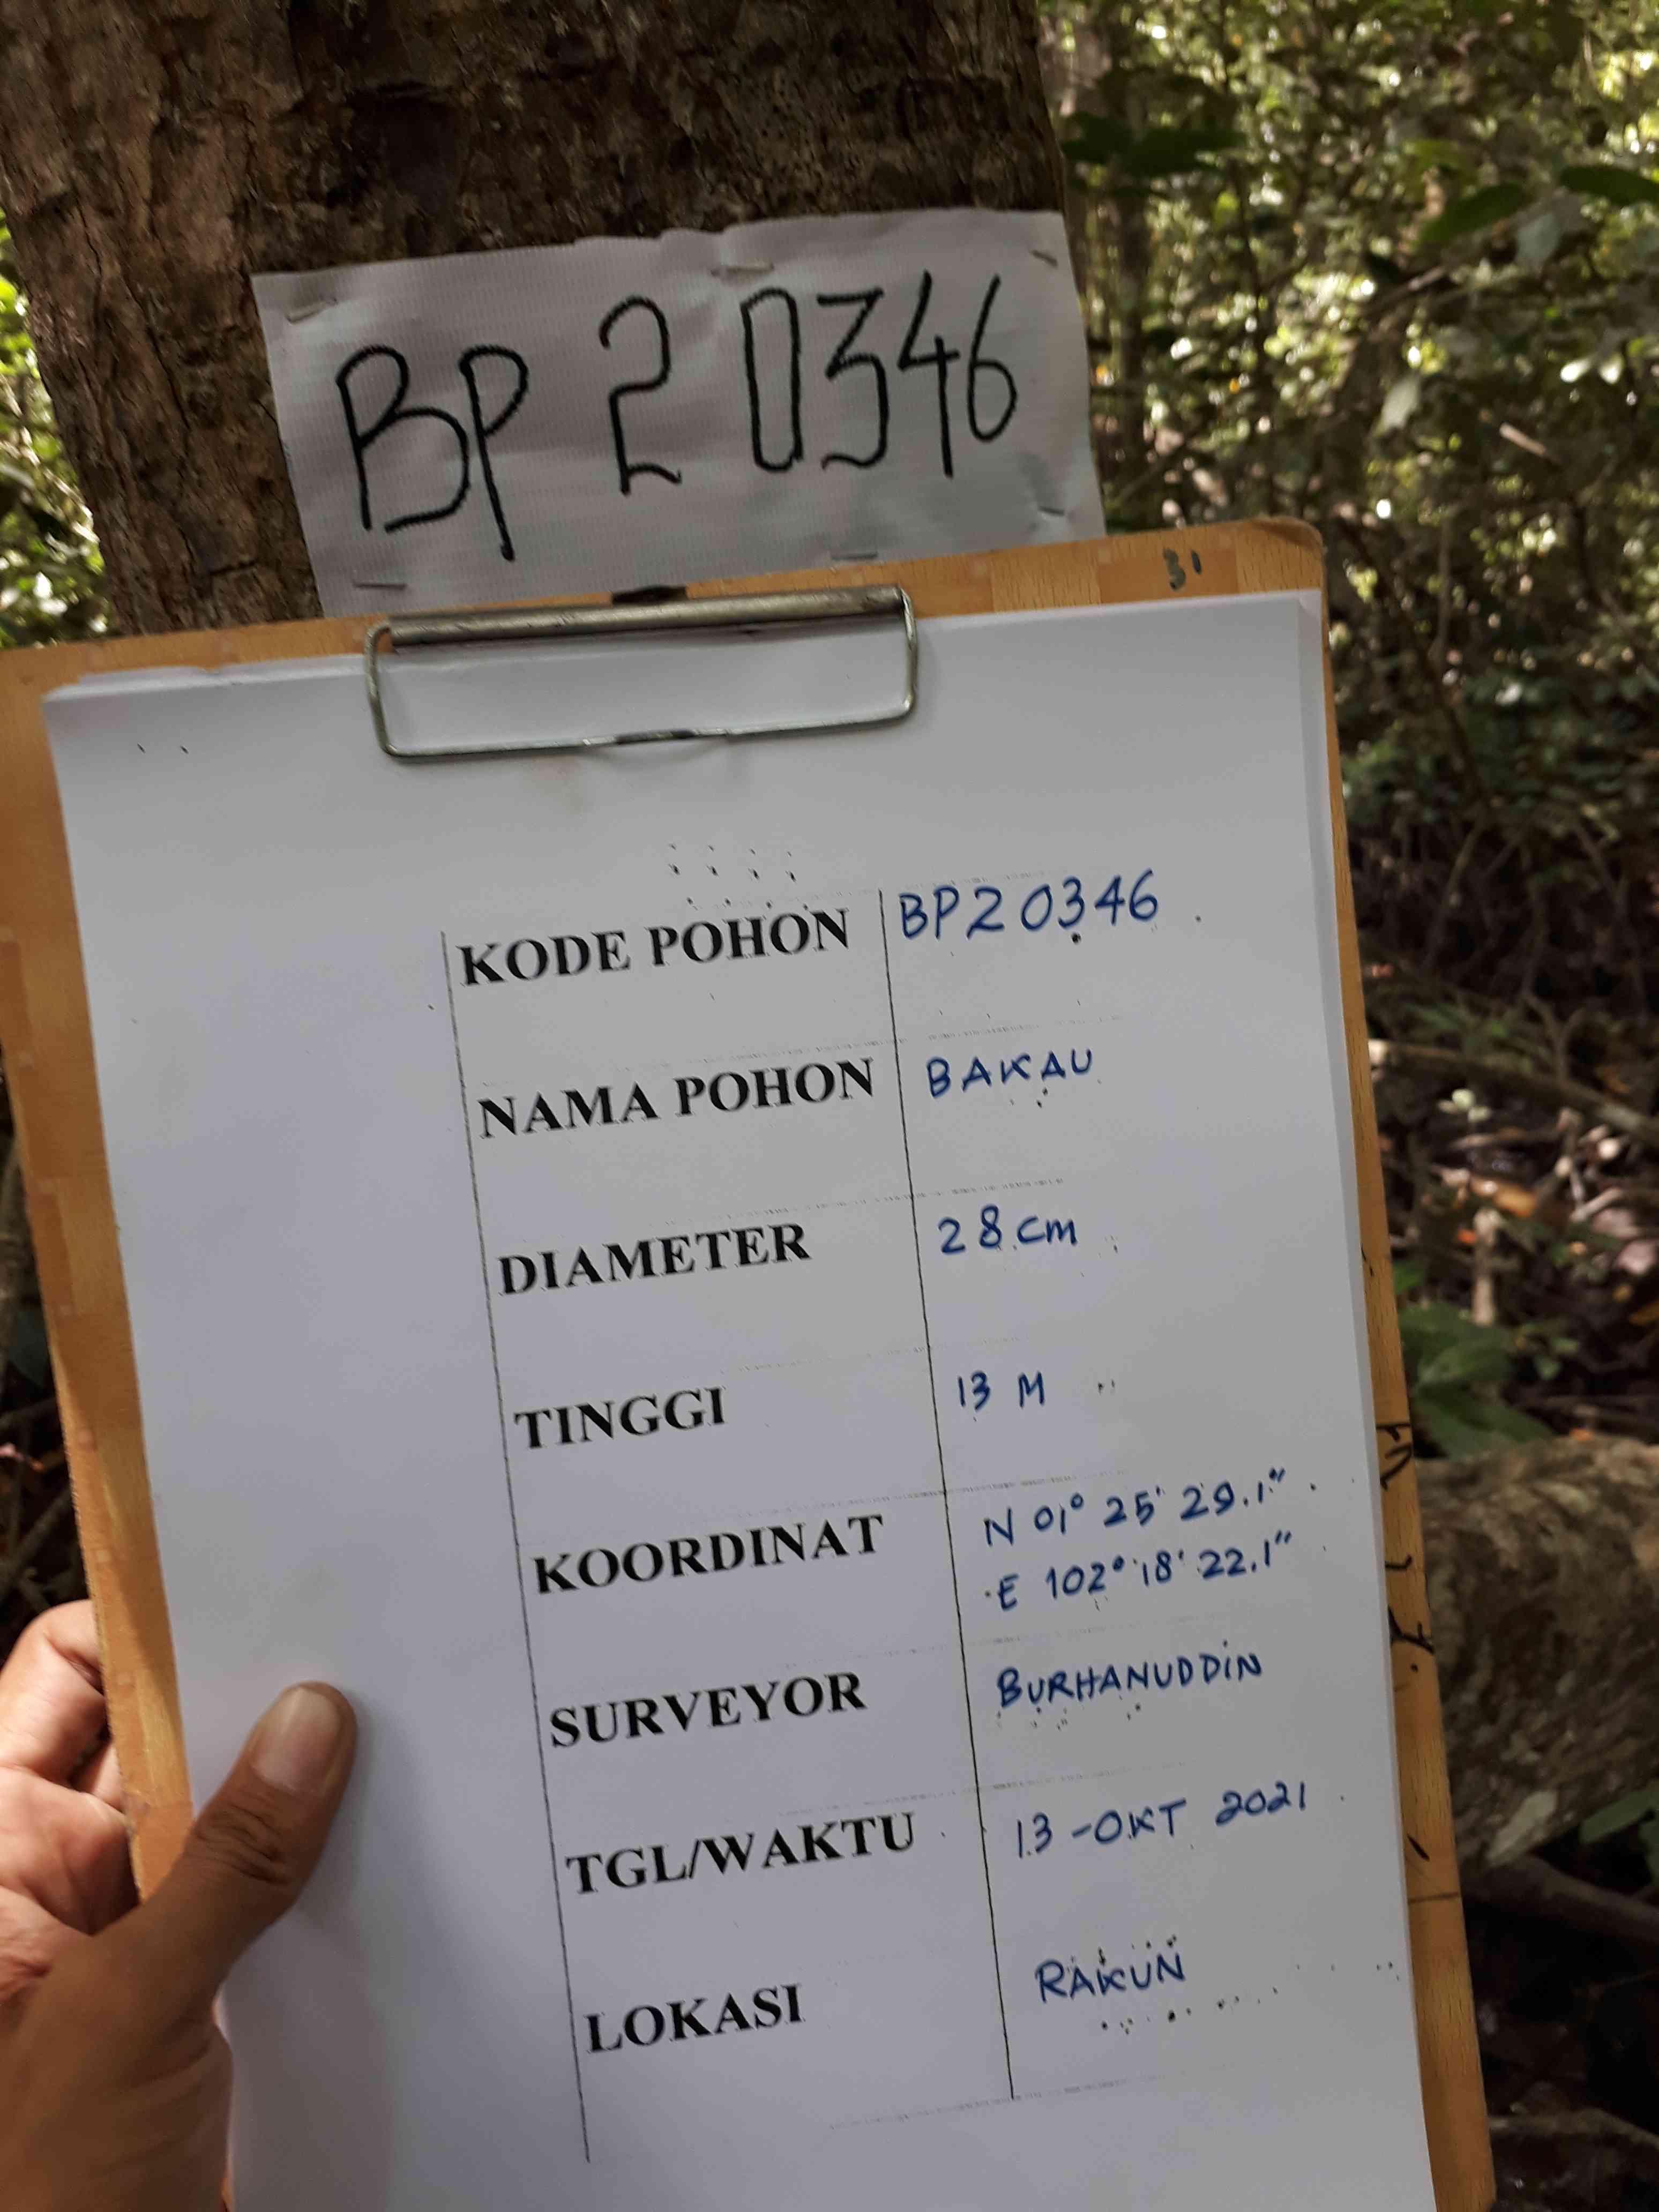 BP 2 0346
31
KODE POHON BP2 0346
NAMA POHON BAKAU
DIAMETER 28 cm
TINGGI 13 M
KOORDINAT N 01° 25' 29.1"
E 102° 18' 22.1"
SURVEYOR BURHANUDDIN
TGL/WAKTU 13-OKT 2021
LOKASI RAKUN